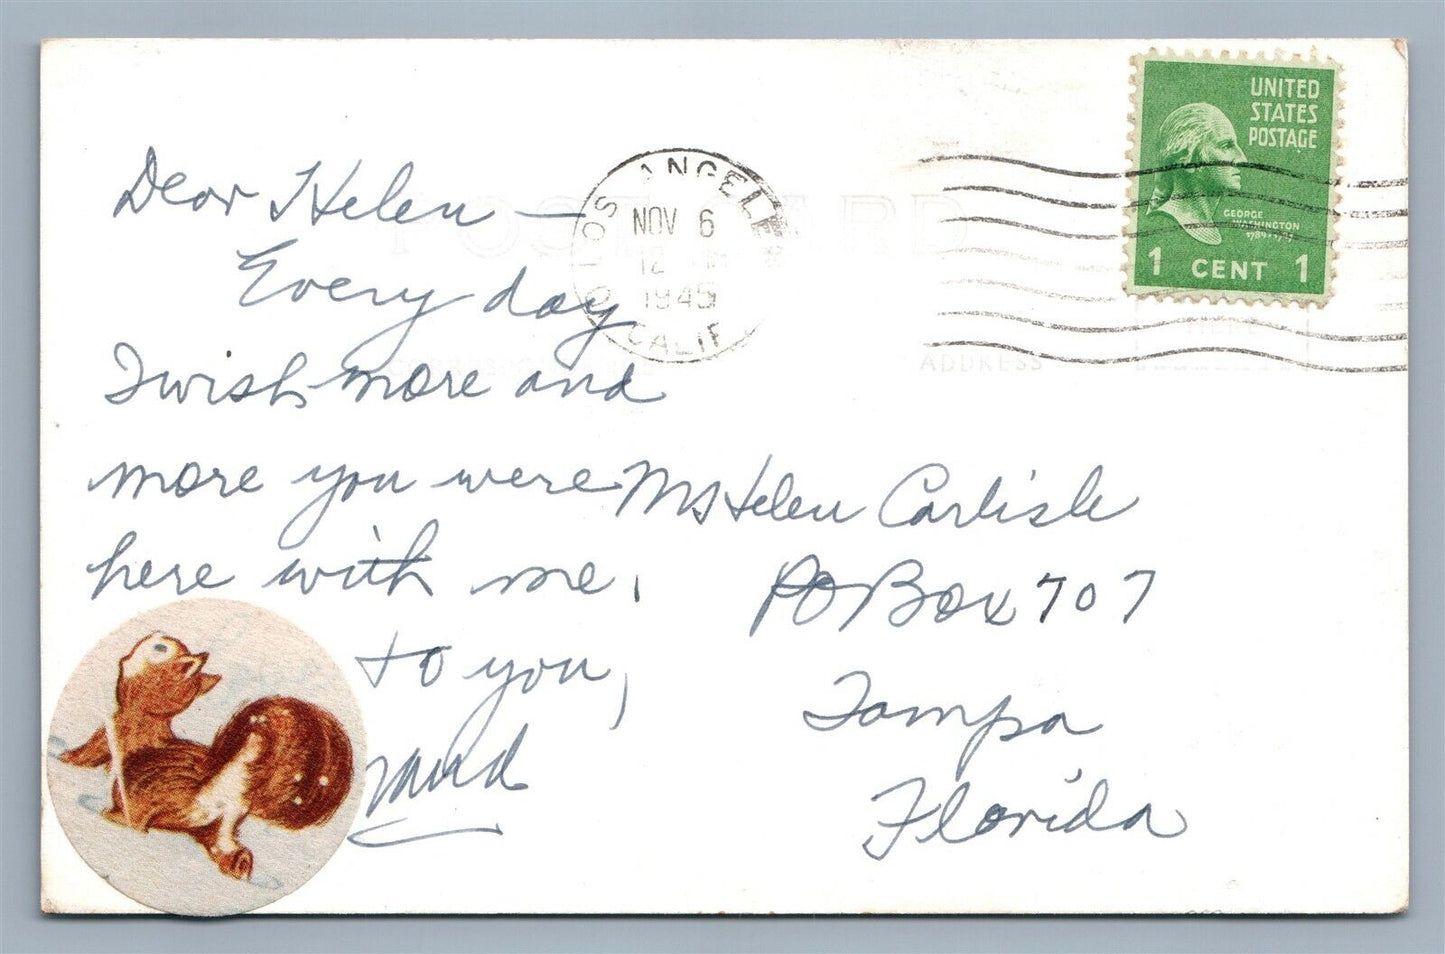 Dear Helen —
Every day
I wish more and
more you were
here with me.
to you,
LOS ANGELES
NOV 6
12 PM
1945
CALIF
UNITED
STATES
POSTAGE
GEORGE
WASHINGTON
1789-1797
1 CENT 1
POST CARD
HERE
CORRESPONDENCE
ADDRESS
Ms Helen Carlisle
PO Box 707
Tampa
Florida